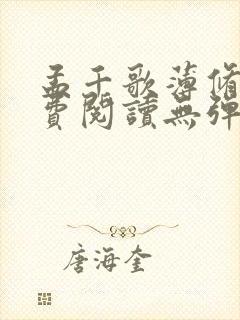 孟千歌薄脩
費閱讀無彈
唐海奎